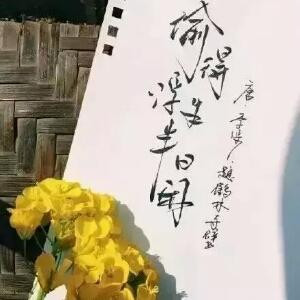 偷得浮生半日闲
唐·李涉·题鹤林寺壁